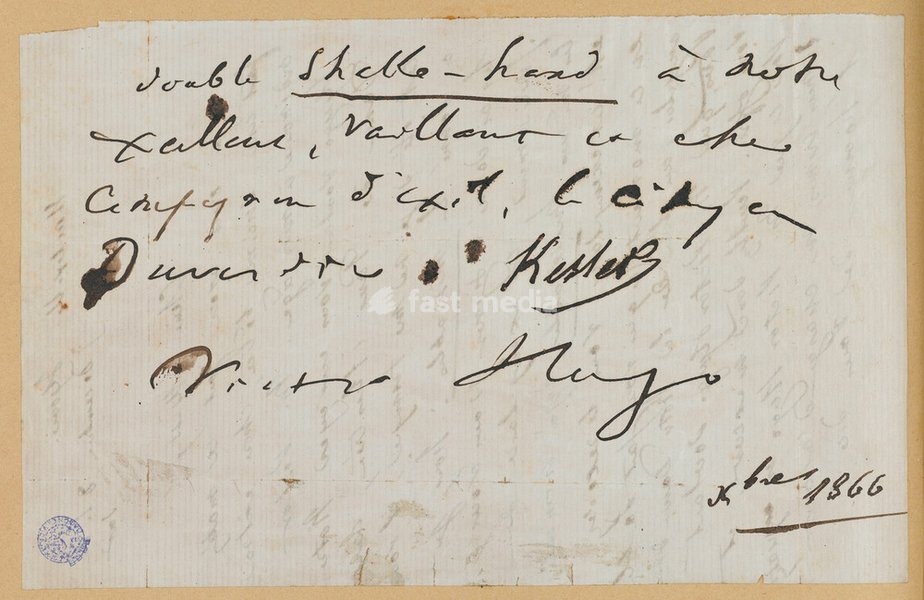 double Shake-hand à notre
xcellent, vaillant et cher
Compagnon d'exil, le citoyen
Duverdier Kesler
fast media
Victor Hugo
Xbre 1866